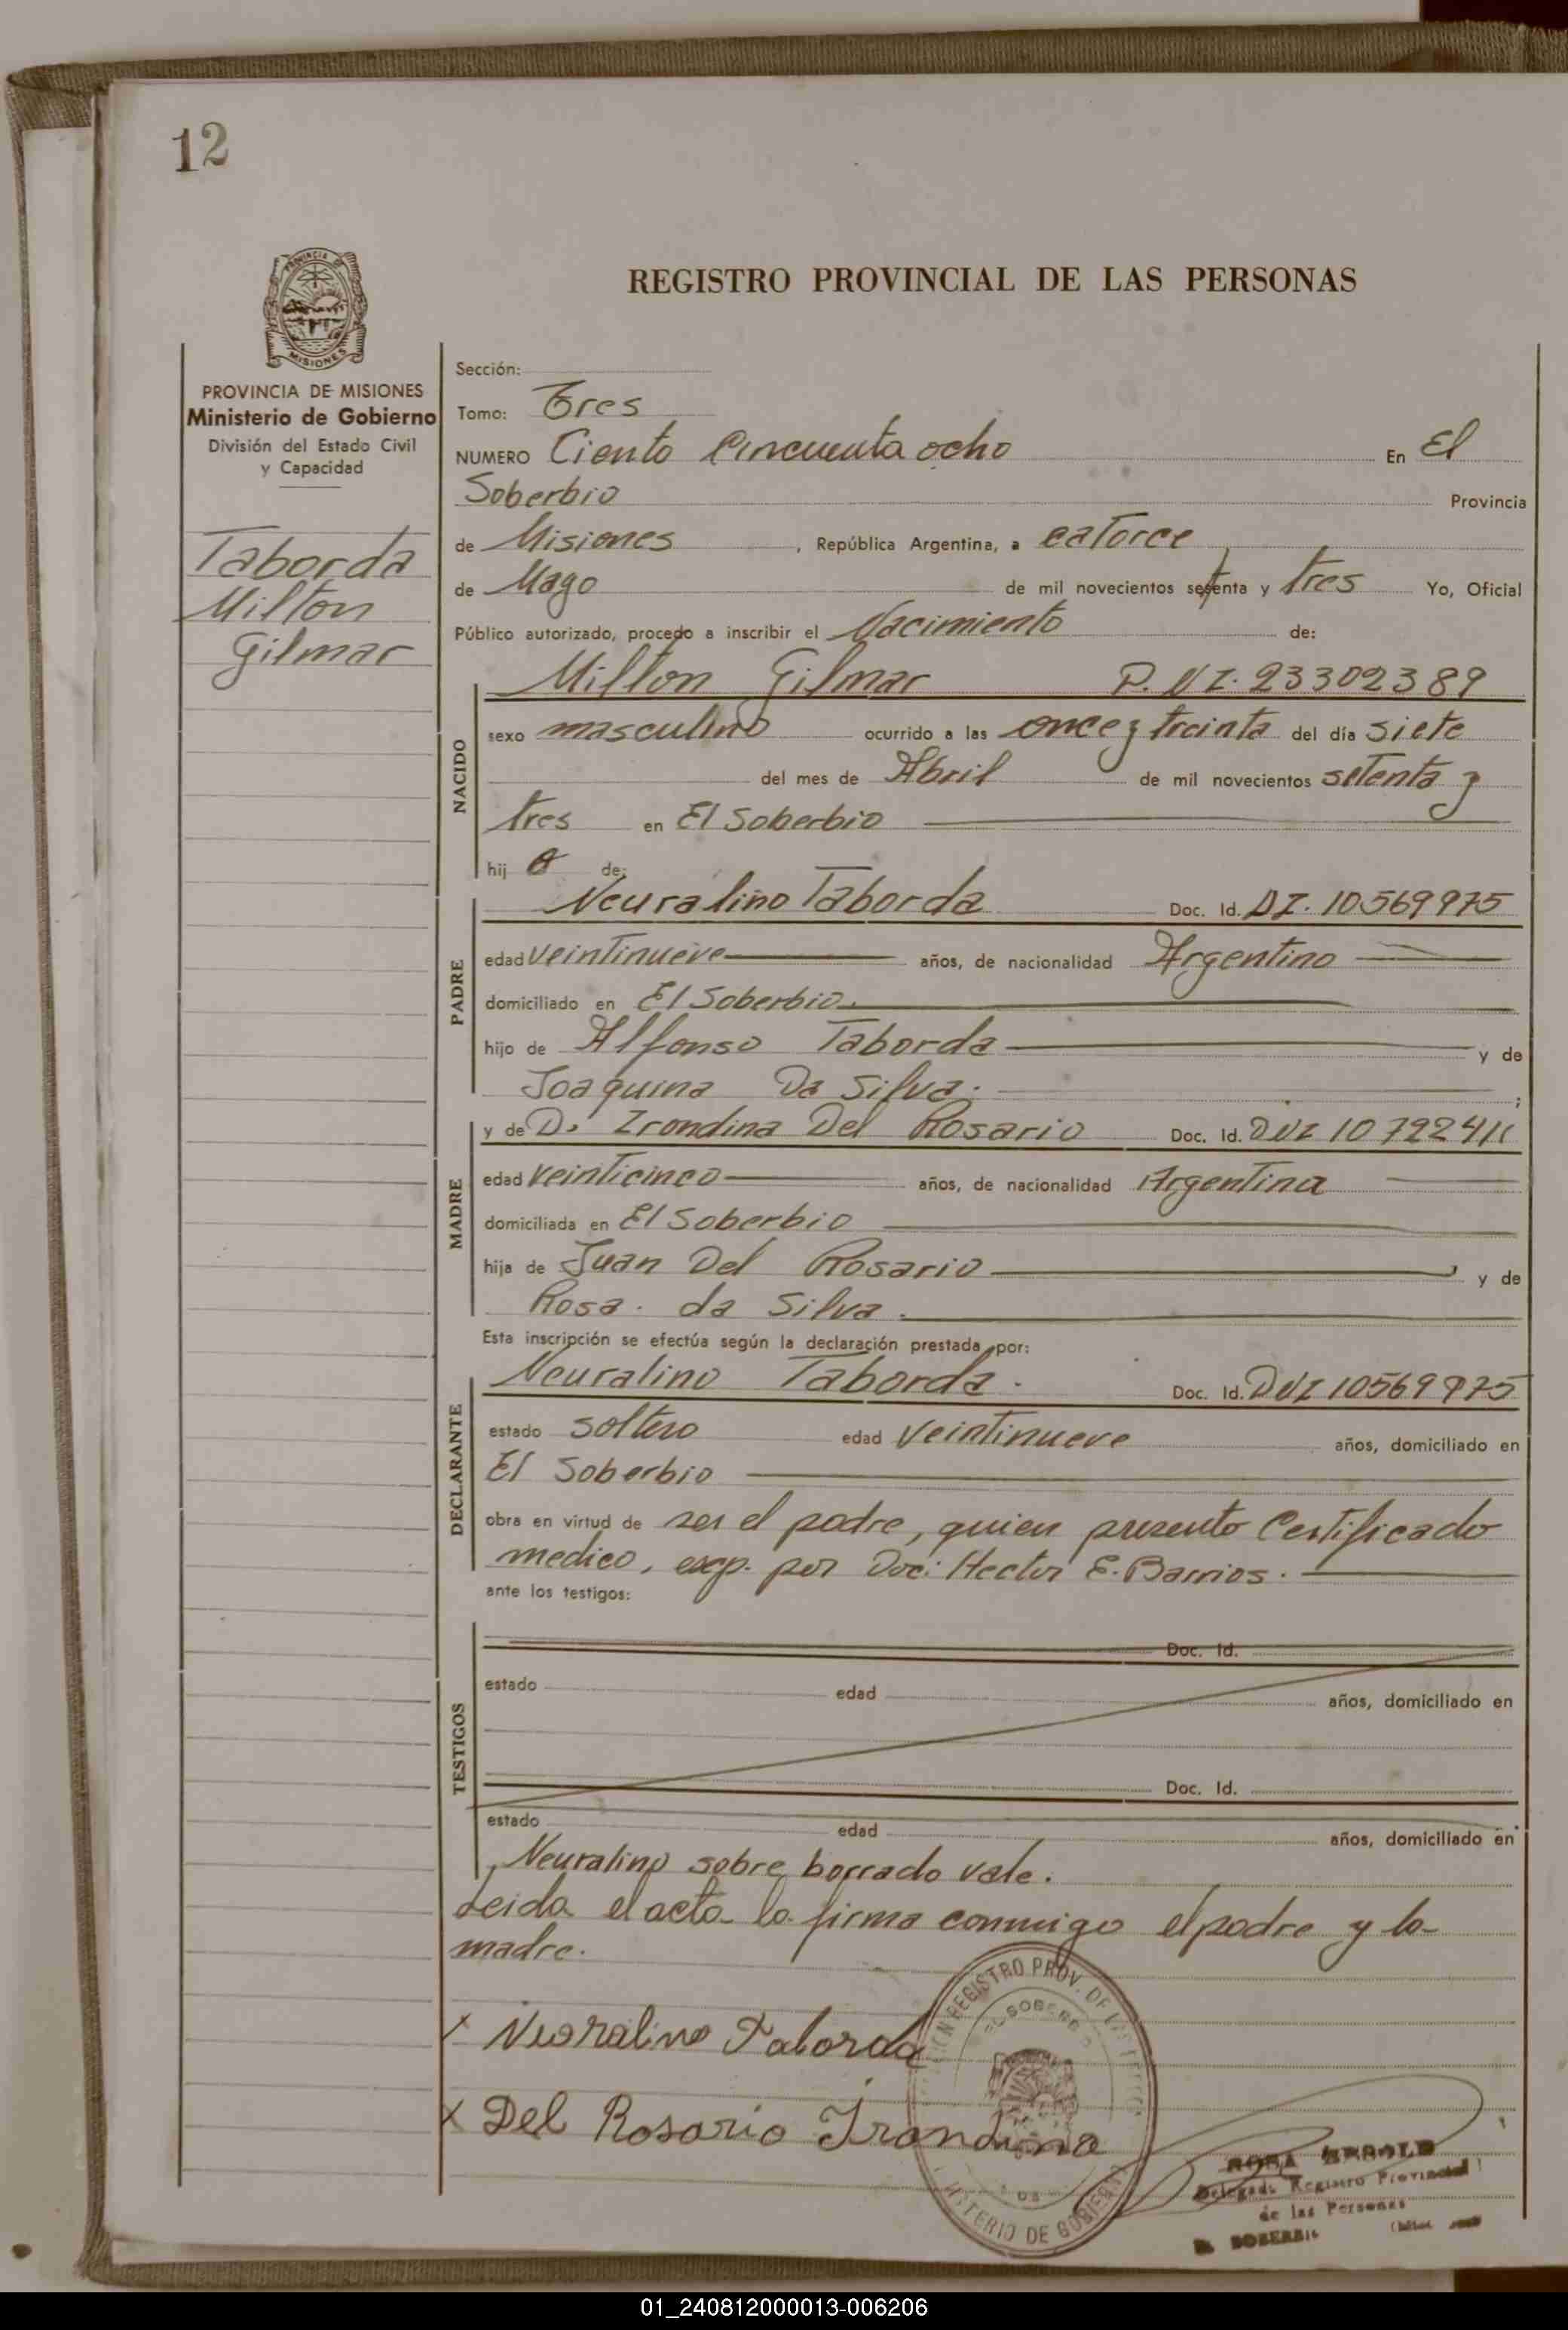 12
PROVINCIA DE
MISIONES
REGISTRO PROVINCIAL DE LAS PERSONAS
PROVINCIA DE MISIONES
Ministerio de Gobierno
División del Estado Civil
y Capacidad
Taborda
Milton
Gilmar
Sección:
Tomo: Tres
NUMERO Ciento Cincuenta ocho En El
Soberbio Provincia
de Misiones, República Argentina, a catorce
de Mayo de mil novecientos setenta y tres Yo, Oficial
Público autorizado, procedo a inscribir el Nacimiento de:
NACIDO
Milton Gilmar D.N.I. 23302389
sexo masculino ocurrido a las once y treinta del día siete
del mes de Abril de mil novecientos setenta y
tres en El Soberbio
hijo de:
PADRE
Neuralino Taborda Doc. Id. D.I. 10569975
edad veintinueve años, de nacionalidad Argentino
domiciliado en El Soberbio.
hijo de Alfonso Taborda y de
Joaquina Da Silva. ;
MADRE
y de D. Irondina Del Rosario Doc. Id. DNI 10722411
edad veinticinco años, de nacionalidad Argentina
domiciliada en El Soberbio
hija de Juan Del Rosario, y de
Rosa. da Silva.
Esta inscripción se efectúa según la declaración prestada por:
DECLARANTE
Neuralino Taborda. Doc. Id. DNI 10569975
estado soltero edad veintinueve años, domiciliado en
El Soberbio
obra en virtud de ser el padre, quien presento Certificado
medico, exp. por Doc: Hector E. Barrios.
ante los testigos:
TESTIGOS
Doc. Id.
estado edad años, domiciliado en
Doc. Id.
estado edad años, domiciliado en
Neuralino sobre borrado vale.
Leida el acta la firma conmigo el padre y la
madre.
x Neoralino Taborda
x Del Rosario Irondina
REGISTRO PROV. DE
EL SOBERBIO
MINISTERIO DE GOBIERNO
ROSA
Delegada Registro Provincial
de las Personas
EL SOBERBIO
01_240812000013-006206